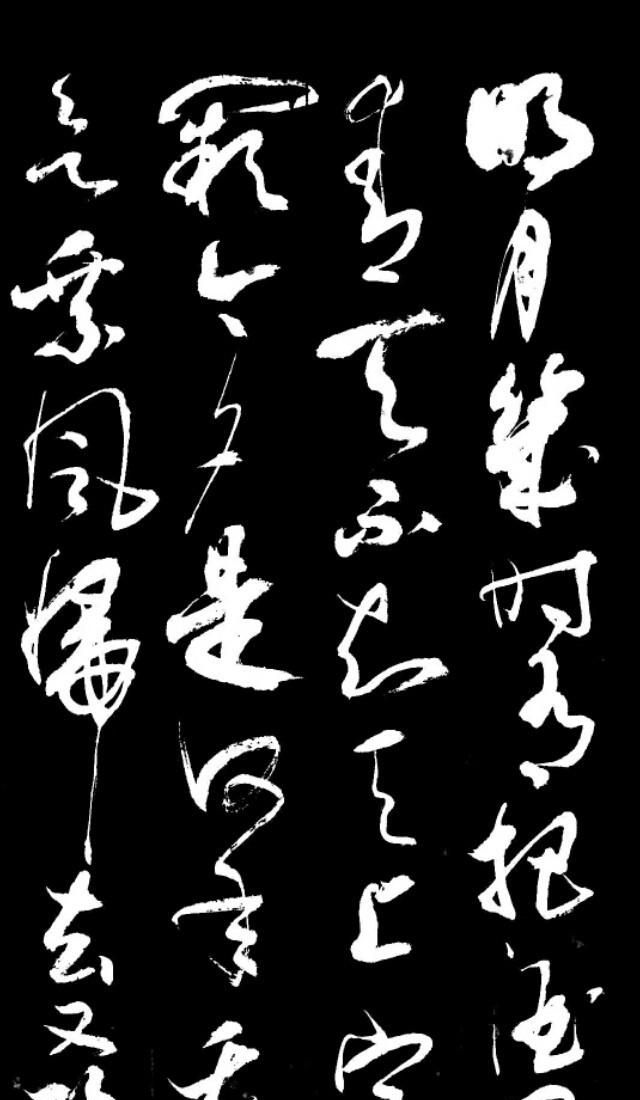 明月幾時有把酒
青天不知天上宮
闕今夕是何年我
欲乘風歸去又